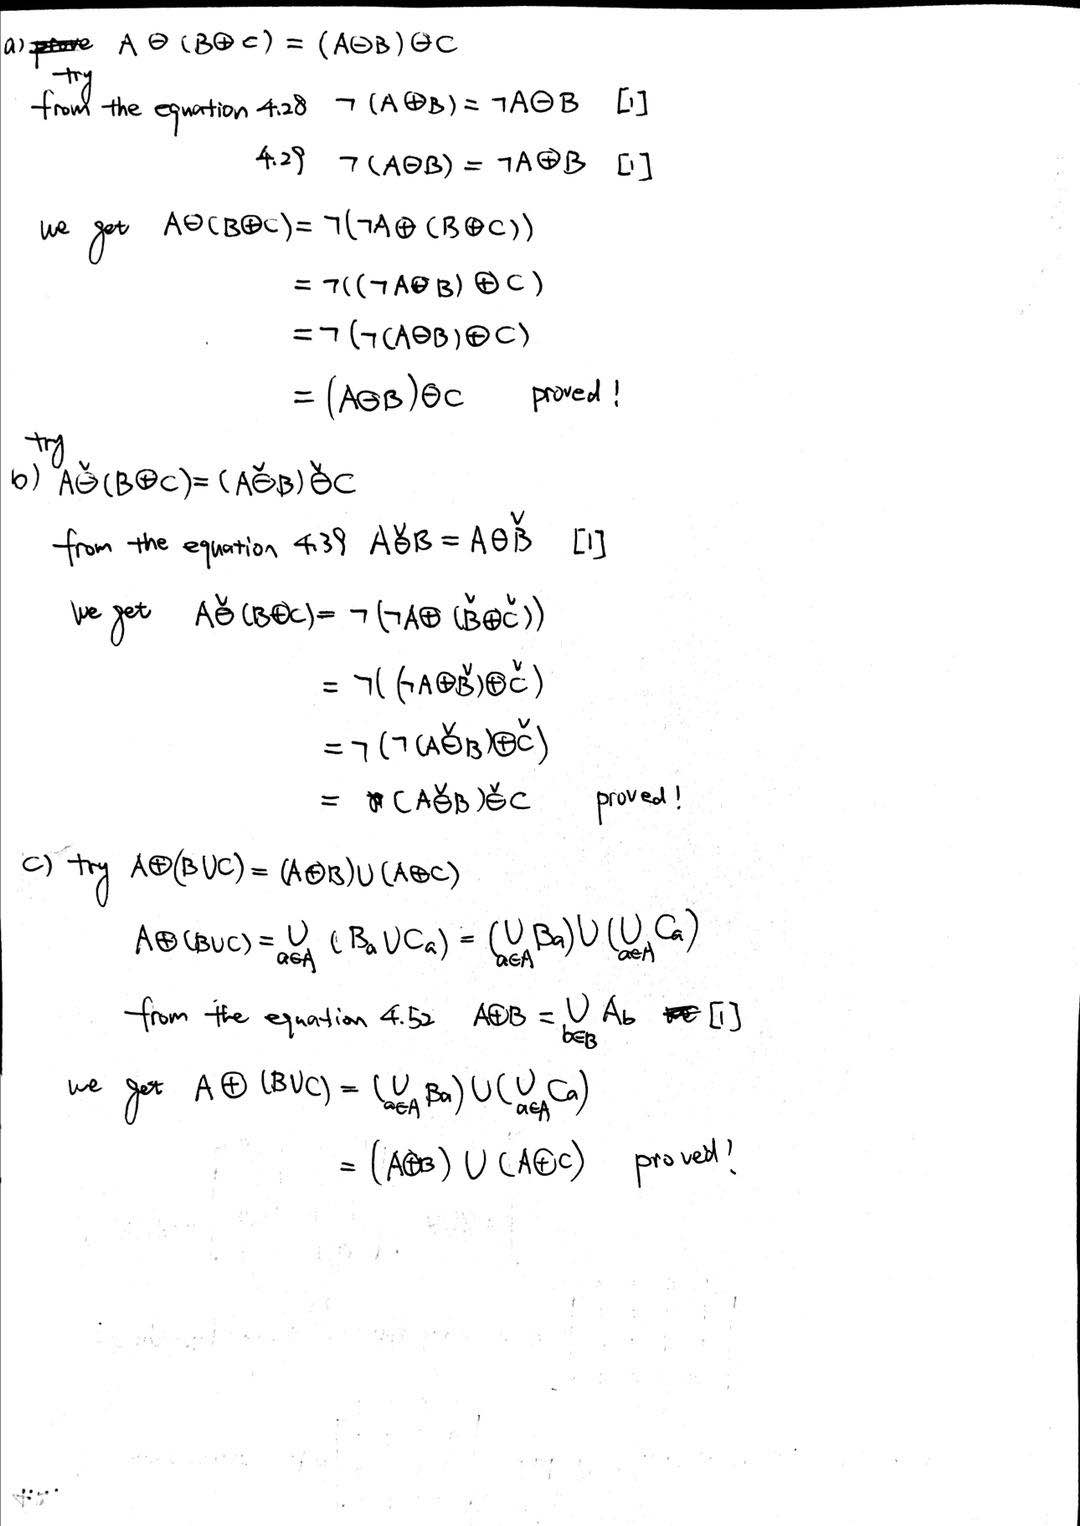 a) A ⊖ (B⊕C) = (A⊖B)⊖C
try
from the equation 4.28 ¬(A⊕B) = ¬A⊖B [1]
4.29 ¬(A⊖B) = ¬A⊕B [1]
we get A⊖(B⊕C) = ¬(¬A⊕(B⊕C))
= ¬((¬A⊕B)⊕C)
= ¬(¬(A⊖B)⊕C)
= (A⊖B)⊖C proved!
try
b) A⊖̌(B⊕C) = (A⊖̌B)⊖̌C
from the equation 4.39 A⊖̌B = A⊖B̌ [1]
We get A⊖̌(B⊕C) = ¬(¬A⊕(B̌⊕Č))
= ¬((¬A⊕B̌)⊕Č)
= ¬(¬(A⊖̌B)⊕Č)
= (A⊖̌B)⊖̌C proved!
c) try A⊕(B∪C) = (A⊕B)∪(A⊕C)
A⊕(B∪C) = ∪_{a∈A} (B_a∪C_a) = (∪_{a∈A} B_a)∪(∪_{a∈A} C_a)
from the equation 4.52 A⊕B = ∪_{b∈B} A_b [1]
we get A⊕(B∪C) = (∪_{a∈A} B_a)∪(∪_{a∈A} C_a)
= (A⊕B)∪(A⊕C) proved!